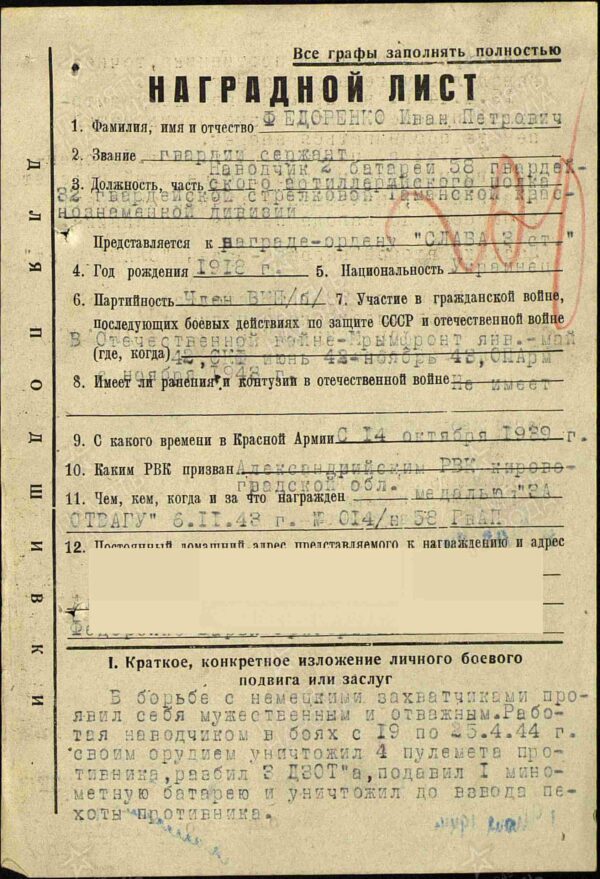 Все графы заполнять полностью
НАГРАДНОЙ ЛИСТ
1. Фамилия, имя и отчество ФЕДОРЕНКО Иван Петрович
2. Звание гвардии сержант
Наводчик 2 батареи 58 гвардей-
3. Должность, часть ского артиллерийского полка
32 гвардейской стрелковой Таманской Крас-
нознаменной дивизии
Представляется к награде-ордену "СЛАВА 3 ст."
4. Год рождения 1918 г. 5. Национальность Украинец
6. Партийность Член ВКП/б/ 7. Участие в гражданской войне,
последующих боевых действиях по защите СССР и отечественной войне
В Отечественной войне-Крымфронт янв.-май
(где, когда) 42, СКФ июнь 42-ноябрь 43, ОПАрм
с ноября 1943 г.
8. Имеет ли ранения и контузии в отечественной войне Не имеет
9. С какого времени в Красной Армии С 14 октября 1939 г.
10. Каким РВК призван Александрийским РВК кирово-
градской обл.
11. Чем, кем, когда и за что награжден медалью "ЗА
ОТВАГУ" 6.11.43 г. № 014/н 58 ГвАП
12. Постоянный домашний адрес представляемого к награждению и адрес
I. Краткое, конкретное изложение личного боевого
подвига или заслуг
В борьбе с немецкими захватчиками про-
явил себя мужественным и отважным. Рабо-
тая наводчиком в боях с 19 по 25.4.44 г.
своим орудием уничтожил 4 пулемета про-
тивника, разбил 3 ДЗОТ"а, подавил I мино-
метную батарею и уничтожил до взвода пе-
хоты противника.
ДЛЯ ПОДШИВКИ